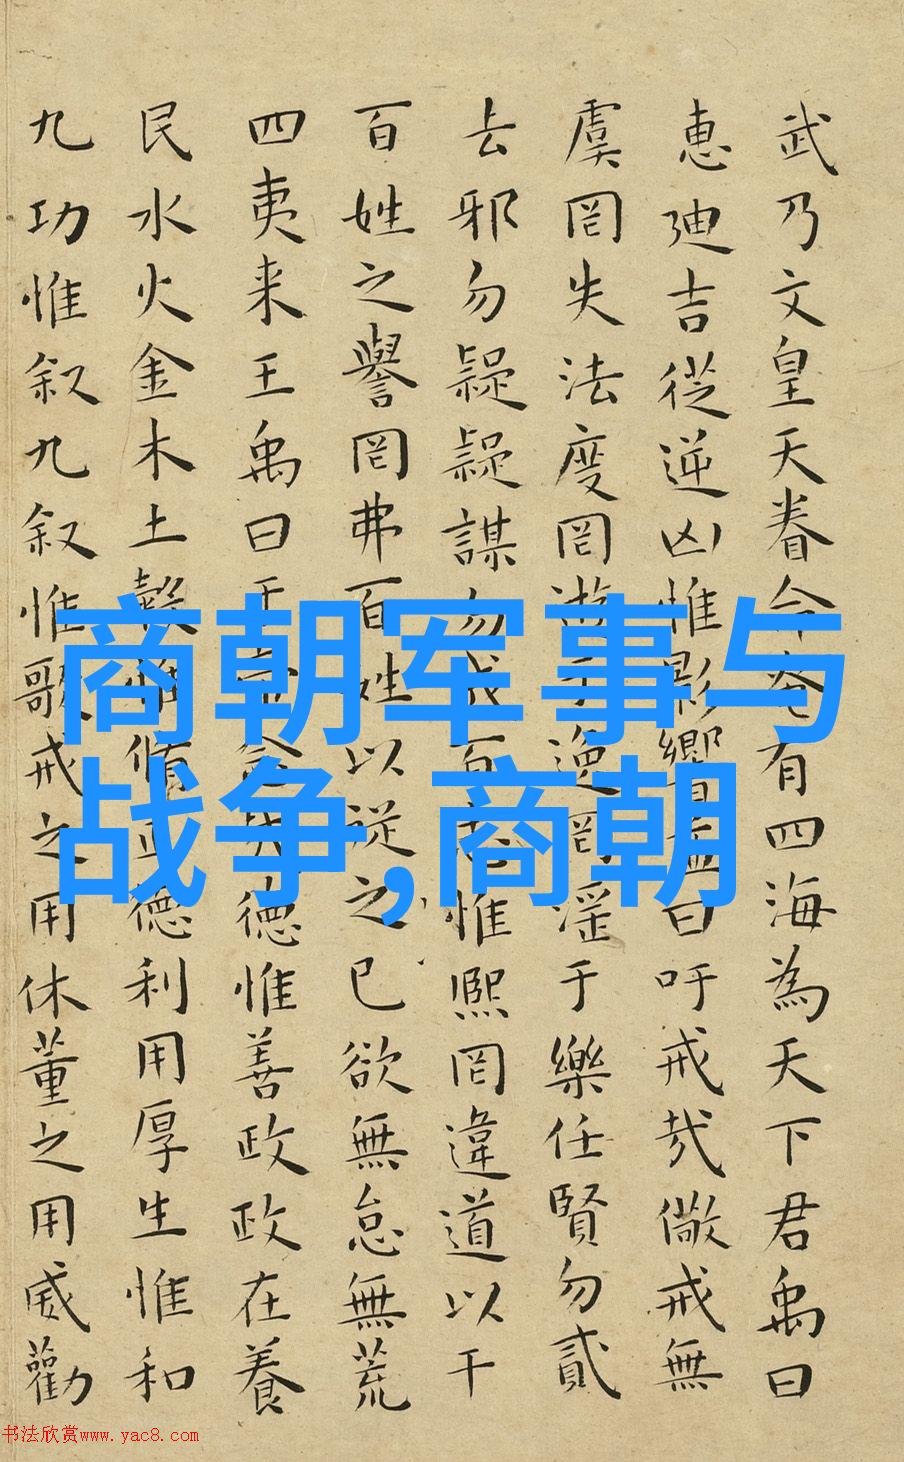 武乃文皇天眷命奄有四海為天下君禹曰
惠迪吉從逆凶惟影響益曰吁戒哉儆戒無
虞罔失法度罔遊于逸罔淫于樂任賢勿貳
去邪勿疑疑謀勿成百志惟熙罔違道以干
百姓之譽罔弗百姓以従之己欲無怠無荒
四夷来王禹曰于帝念哉德惟善政政在養
民水火金木土穀惟脩正德利用厚生惟和
九功惟叙九叙惟歌戒之用休董之用威勸
商朝军事与
战争,商朝
书法欣赏www.yac8.com